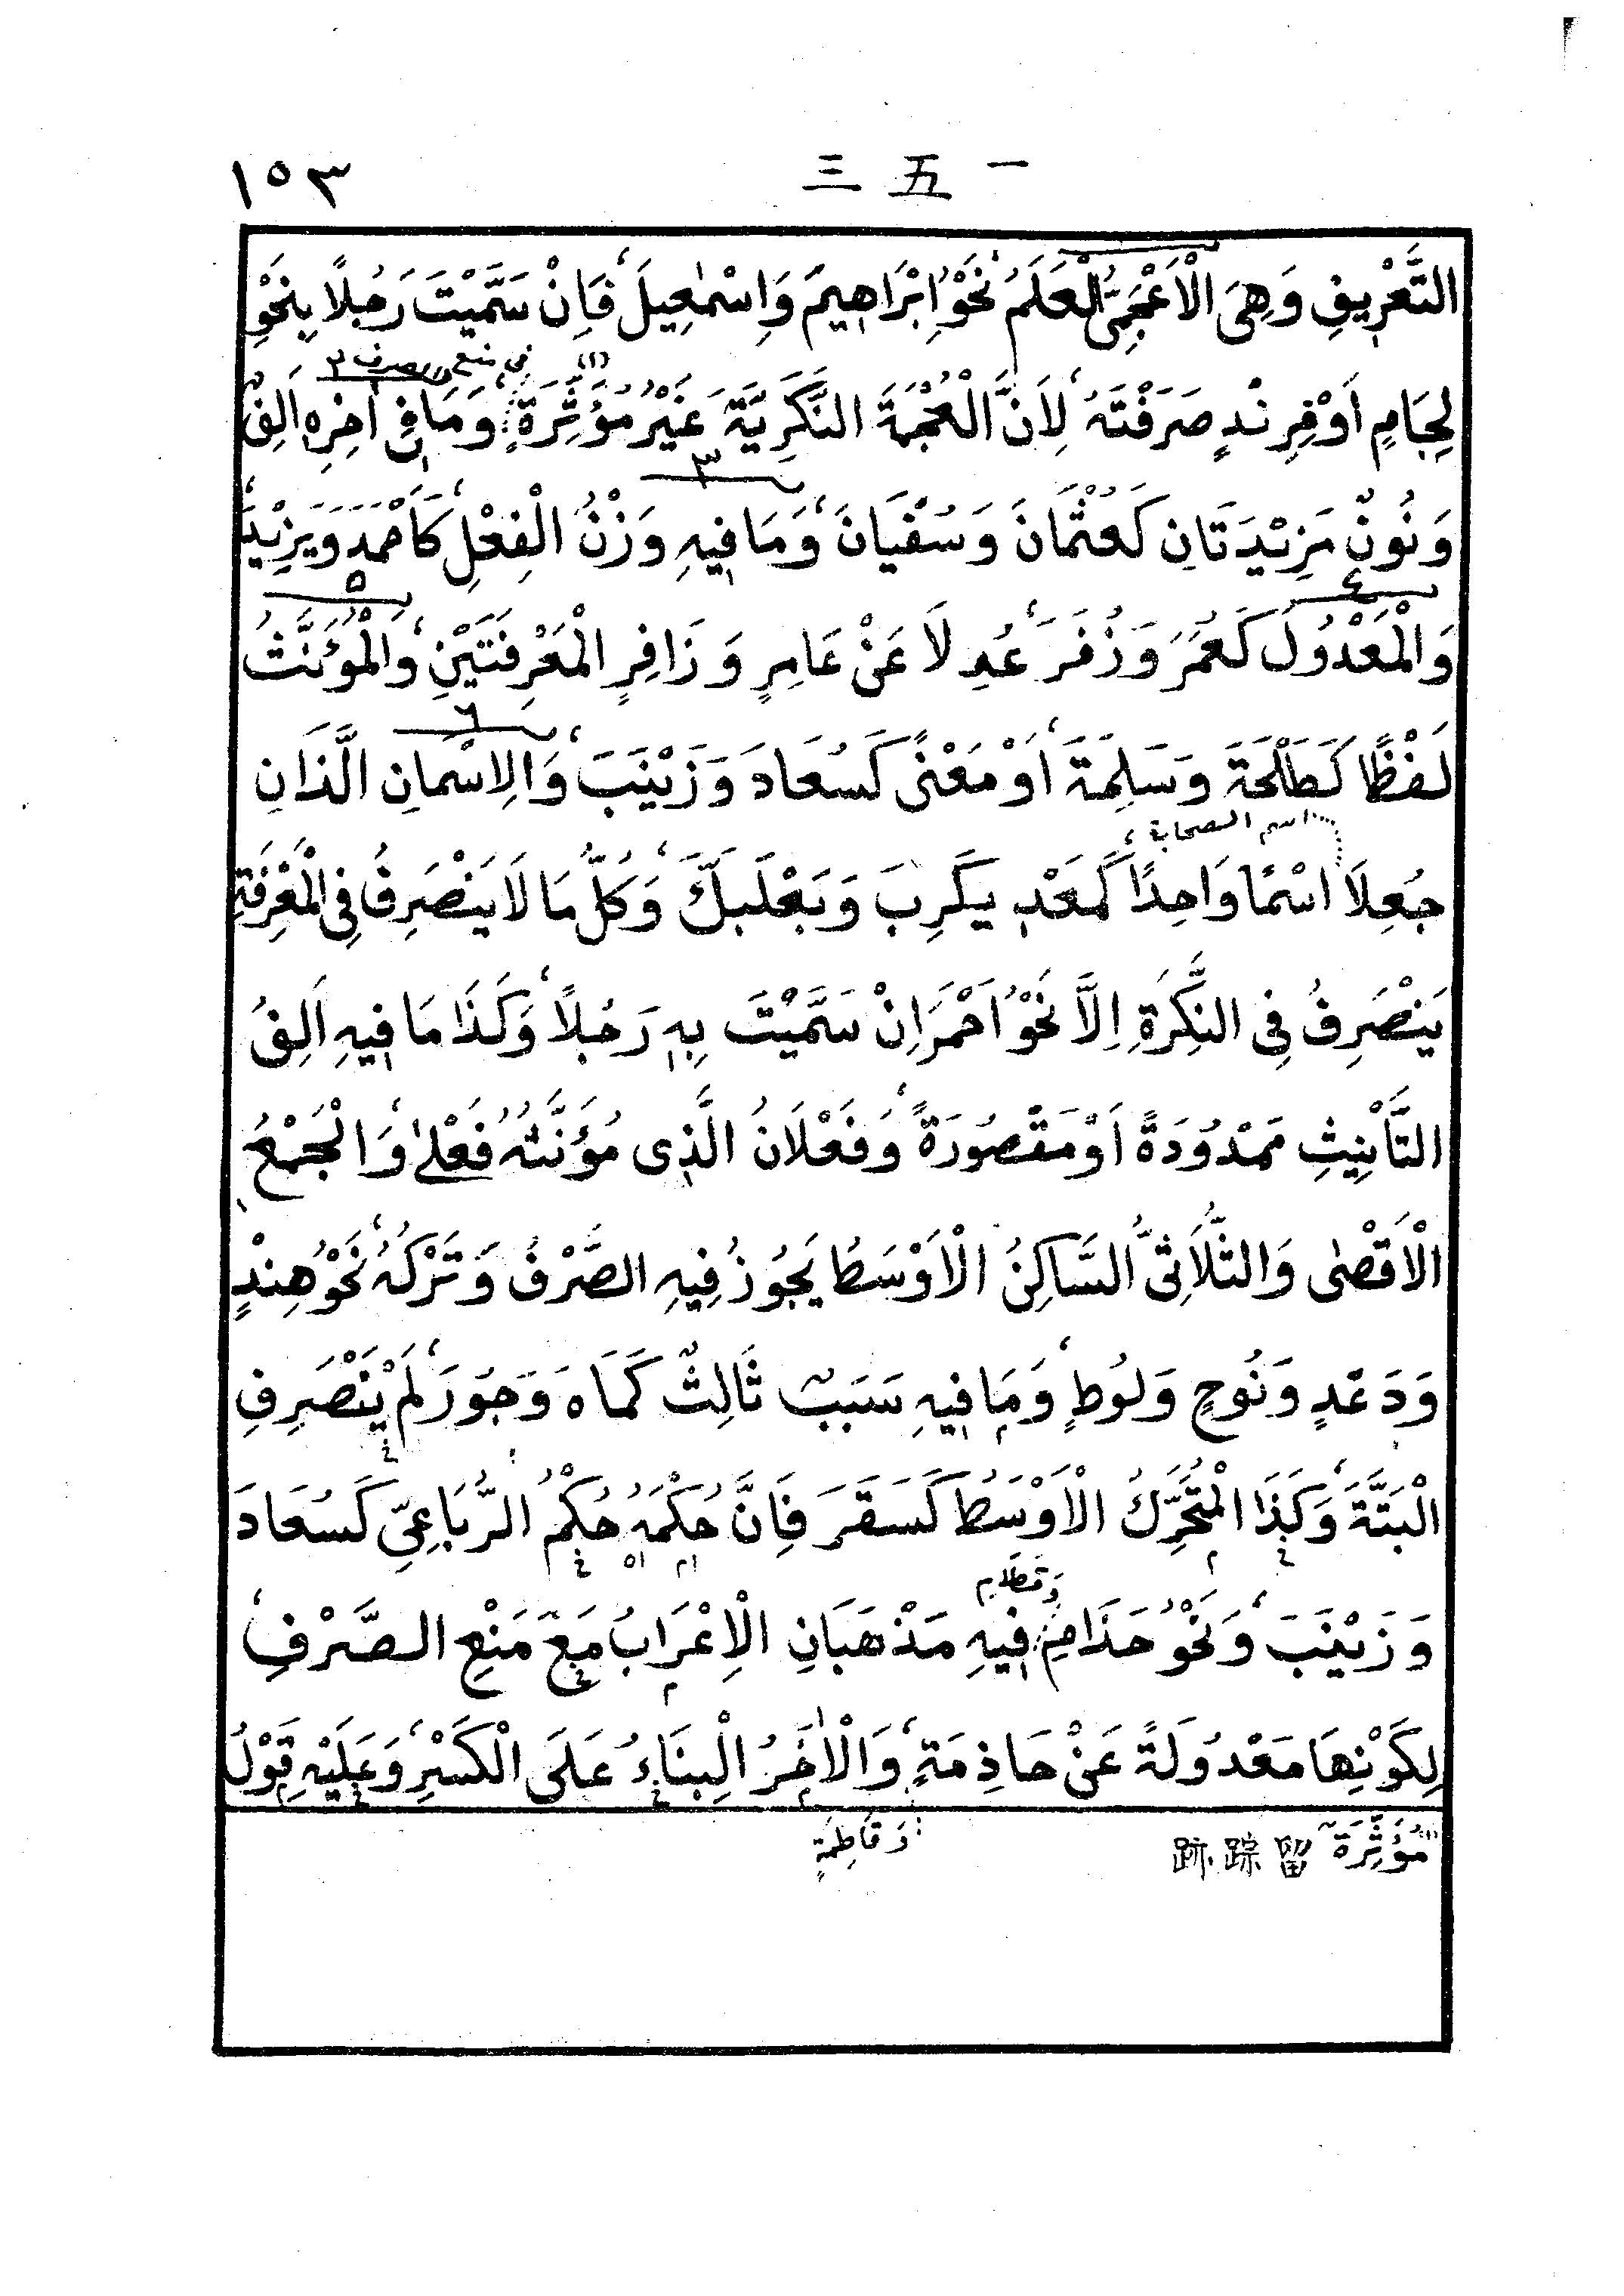 ١٥٣ 三五一
التَّعْرِيفِ وَهِىَ الْاَعْجَمِىُّ الْعَلَمُ نَحْوُ اِبْرَاهِيمَ وَاِسْمٰعِيلَ، فَاِنْ سَمَّيْتَ رَجُلًا بِنَحْوِ
فى منع الصرف ٢
(١)
لِجَامٍ اَوْ فِرِنْدٍ صَرَفْتَهُ، لِاَنَّ الْعُجْمَةَ النَّكَرِيَّةَ غَيْرُ مُؤَثِّرَةٍ، وَمَا فِى اٰخِرِهِ اَلِفٌ
٣
وَنُونٌ مَزِيْدَتَانِ كَعُثْمَانَ وَسُفْيَانَ، وَمَا فِيهِ وَزْنُ الْفِعْلِ، كَاَحْمَدَ وَيَزِيْدَ،
٤ ٥
وَالْمَعْدُولُ كَعُمَرَ وَزُفَرَ، عُدِلَا عَنْ عَامِرٍ وَزَافِرٍ الْمَعْرِفَتَيْنِ، وَالْمُؤَنَّثُ
٦
لَفْظًا كَطَلْحَةَ وَسَلِمَةَ، اَوْ مَعْنًى كَسُعَادَ وَزَيْنَبَ، وَالِاسْمَانِ الَّذَانِ
اسم الصحابة
جُعِلَا اسْمًا وَاحِدًا، كَمَعْدِ يكَرِبَ وَبَعْلَبَكَّ، وَكُلُّ مَا لَا يَنْصَرِفُ فِى الْمَعْرِفَةِ
يَنْصَرِفُ فِى النَّكِرَةِ اِلَّا نَحْوُ اَحْمَرَ اِنْ سَمَّيْتَ بِهِ رَجُلًا، وَكَذَا مَا فِيهِ اَلِفُ
التَّأْنِيثِ مَمْدُودَةً اَوْ مَقْصُورَةً، وَفَعْلَانُ الَّذِى مُؤَنَّثُهُ فَعْلٰى، وَالْجَمْعُ
الْاَقْصٰى وَالثُّلَاثِىُّ السَّاكِنُ الْاَوْسَطُ يَجُوزُ فِيهِ الصَّرْفُ وَتَرْكُهُ، نَحْوُ هِنْدٍ
وَدَعْدٍ وَنُوحٍ وَلُوطٍ، وَمَا فِيهِ سَبَبٌ ثَالِثٌ كَمَاهَ وَجُورَ، لَمْ يَنْصَرِفِ
الْبَتَّةَ، وَكَذَا الْمُتَحَرِّكُ الْاَوْسَطُ كَسَقَرَ فَاِنَّ حُكْمَهُ حُكْمُ الرُّبَاعِىِّ كَسُعَادَ
وَقَطَامِ
وَزَيْنَبَ، وَنَحْوُ حَذَامِ فِيهِ مَذْهَبَانِ الْاِعْرَابُ مَعَ مَنْعِ الصَّرْفِ،
لِكَوْنِهَا مَعْدُولَةً عَنْ حَاذِمَةٍ، وَالْاٰخَرُ الْبِنَاءُ عَلَى الْكَسْرِ، وَعَلَيْهِ قَوْلُ
(١) مُؤَثِّرَةٌ 留踪跡 وَقَاطِمَةٍ